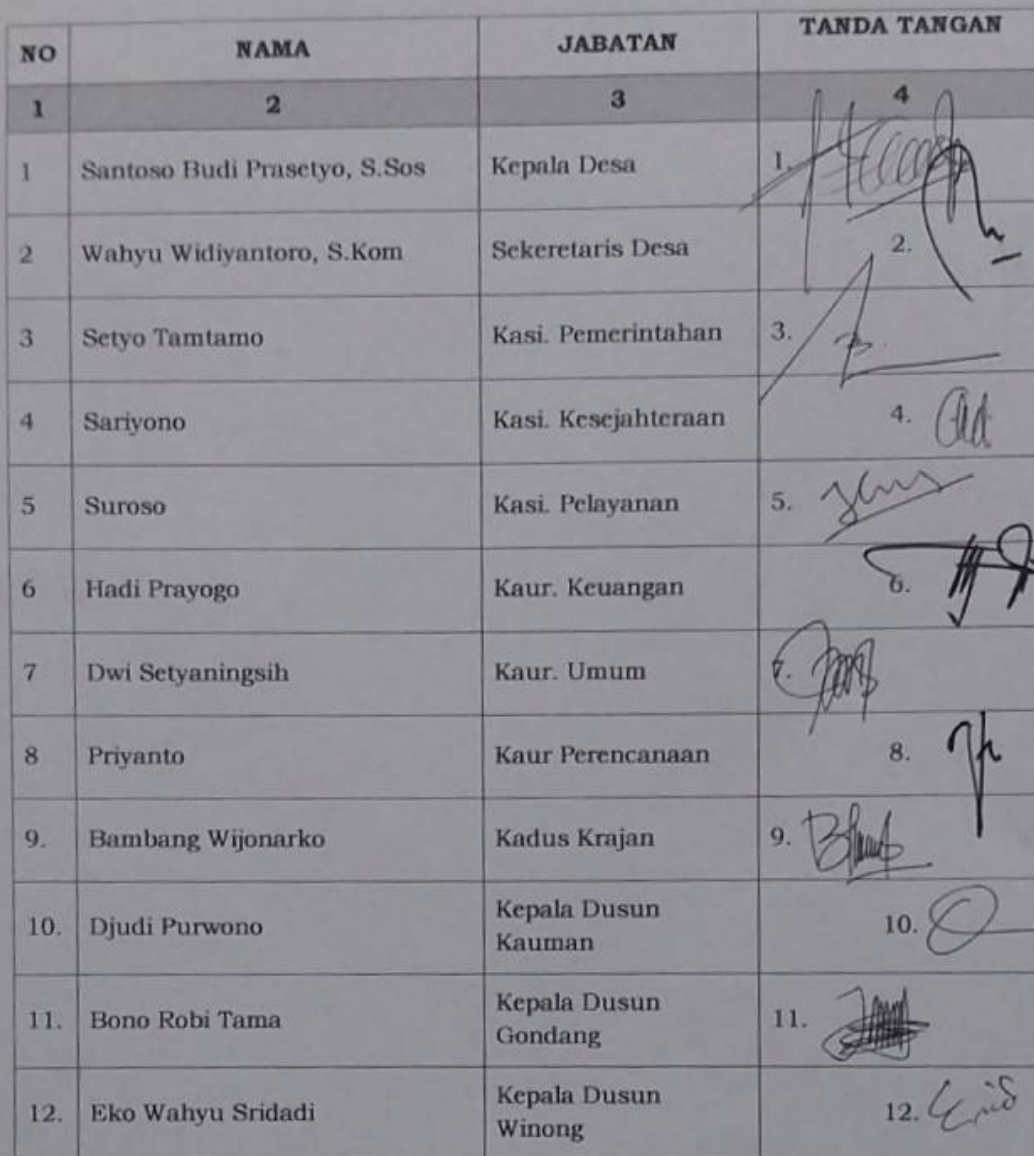 NO NAMA JABATAN TANDA TANGAN
1 2 3 4
1 Santoso Budi Prasetyo, S.Sos Kepala Desa 1.
2 Wahyu Widiyantoro, S.Kom Sekeretaris Desa 2.
3 Setyo Tamtamo Kasi. Pemerintahan 3.
4 Sariyono Kasi. Kesejahteraan 4.
5 Suroso Kasi. Pelayanan 5.
6 Hadi Prayogo Kaur. Keuangan 6.
7 Dwi Setyaningsih Kaur. Umum 7.
8 Priyanto Kaur Perencanaan 8.
9. Bambang Wijonarko Kadus Krajan 9.
10. Djudi Purwono Kepala Dusun 10.
Kauman
11. Bono Robi Tama Kepala Dusun 11.
Gondang
12. Eko Wahyu Sridadi Kepala Dusun 12.
Winong